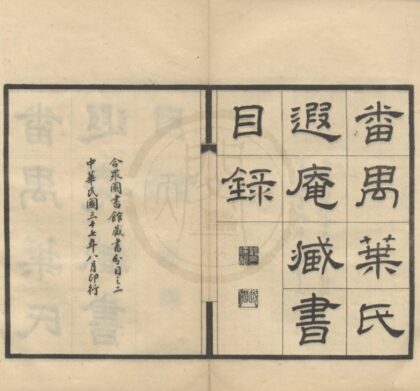 番禺葉氏
遐庵藏書
目錄
合眾圖書館藏書分目之二
中華民國三十七年八月印行